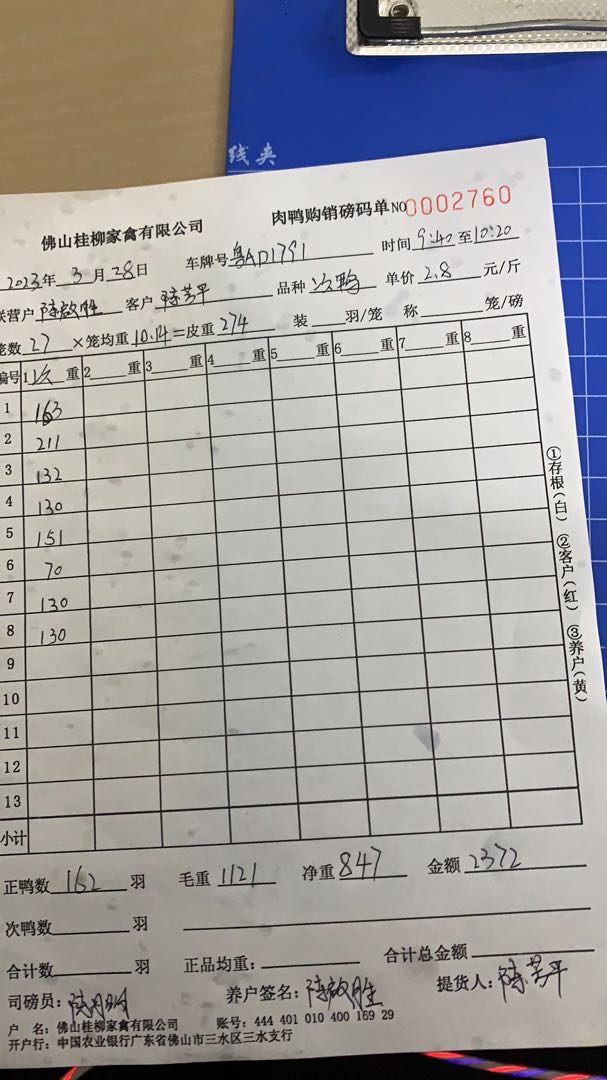 线夹
佛山桂柳家禽有限公司 肉鸭购销磅码单 NO0002760
2023年3月28日 车牌号粤AD1791 时间9:40至10:20
联营户陈啟胜 客户陈芳平 品种次鸭 单价2.8元/斤
笼数27×笼均重10.14=皮重274 装____羽/笼 称____笼/磅
编号 1次重 2____重 3____重 4____重 5____重 6____重 7____重 8____重
1 163
2 211
3 132
4 130
5 151
6 70
7 130
8 130
9
10
11
12
13
小计
①存根(白) ②客户(红) ③养户(黄)
正鸭数162羽 毛重1121 净重847 金额2372
次鸭数____羽
合计数____羽 正品均重:____ 合计总金额____
司磅员: 养户签名:陈啟胜 提货人:陈芳平
户 名:佛山桂柳家禽有限公司 账号:444 401 010 400 169 29
开户行:中国农业银行广东省佛山市三水区三水支行